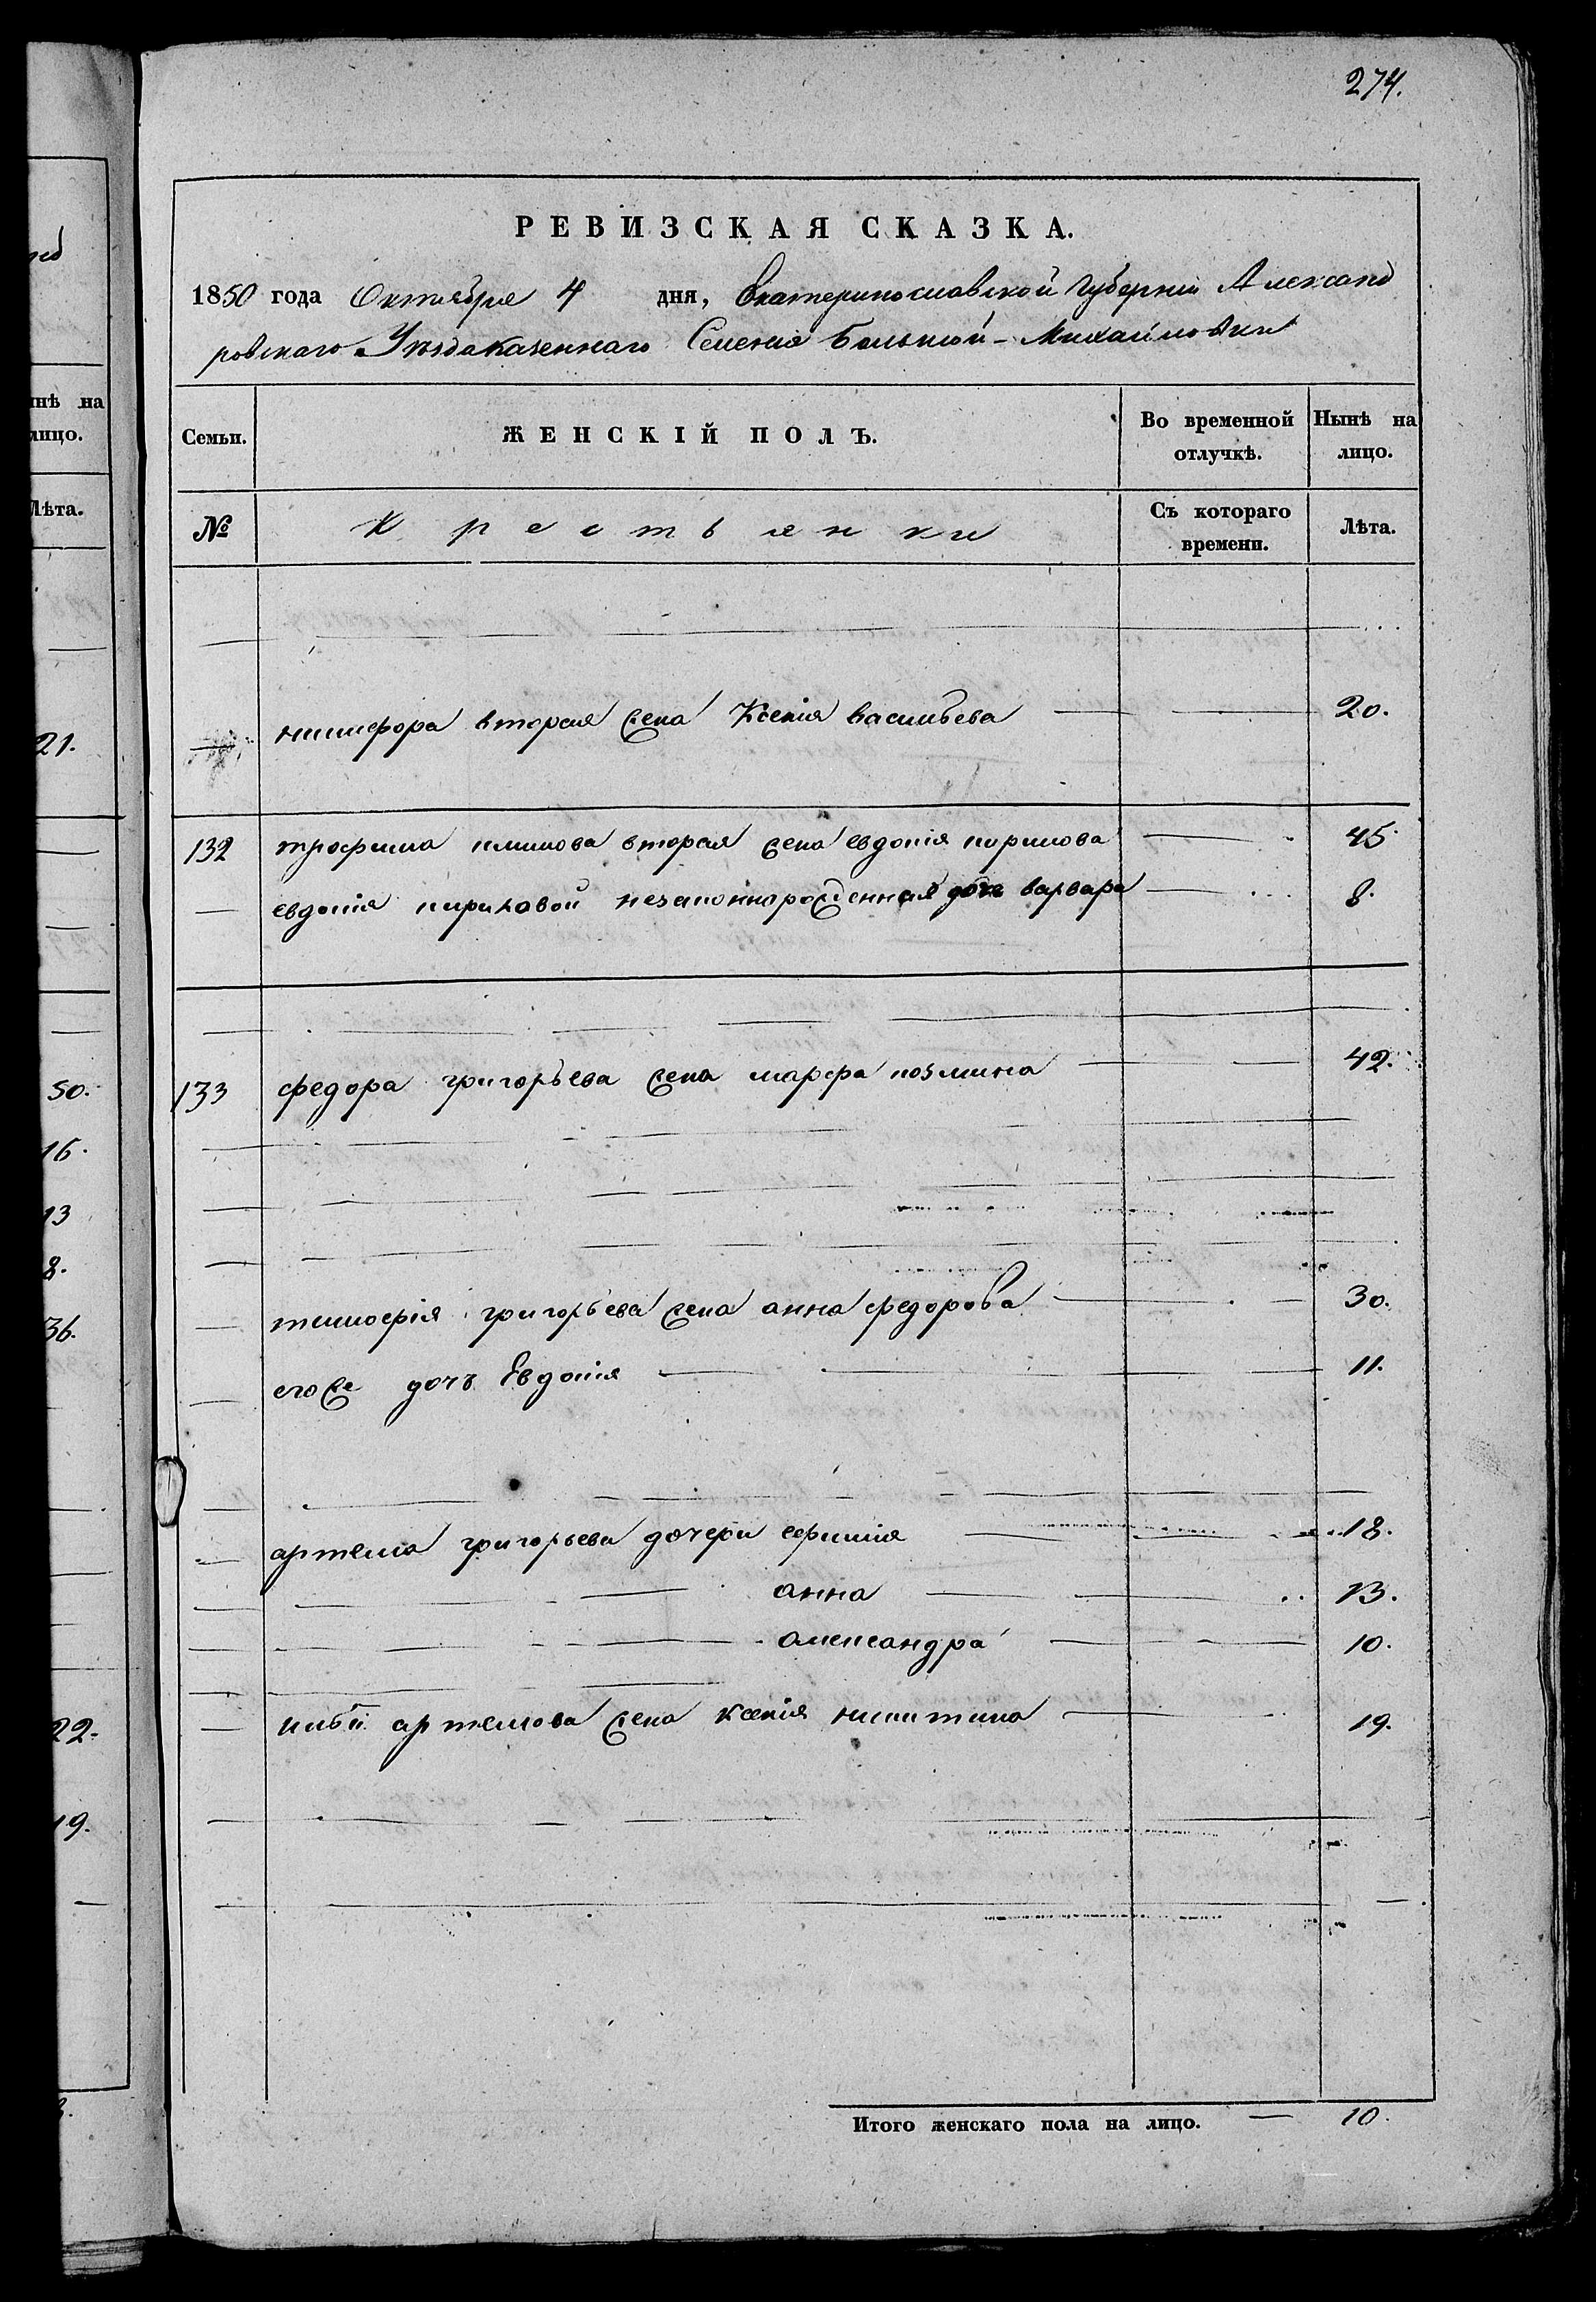 274.
РЕВИЗСКАЯ СКАЗКА.
1850 года Октября 4 дня, Екатеринославской Губернии Александ
ровскаго Уѣзда казеннаго Селения Большой-Михайловки
Семьи. ЖЕНСКІЙ ПОЛЪ. Во временной отлучкѣ. Нынѣ на лицо.
№ Крестьянки Съ котораго времени. Лѣта.
никифора вторая жена Ксенія васильева 20.
132 трофима климова вторая жена евдокія кирилова 45
евдокія кириловой незаконнорожденная дочь варвара 8.
133 федора григорьева жена марфа козмина 42.
тимофея григорьева жена анна федорова 30.
егоже дочь Евдокія 11.
артема григорьева дочери ефимія 18.
анна 13.
александра 10.
артемова жена ксенія никитина 19.
Итого женскаго пола на лицо. 10.
нѣ на
лицо.
Лѣта.
21.
50.
16.
13
8.
36.
22.
19.